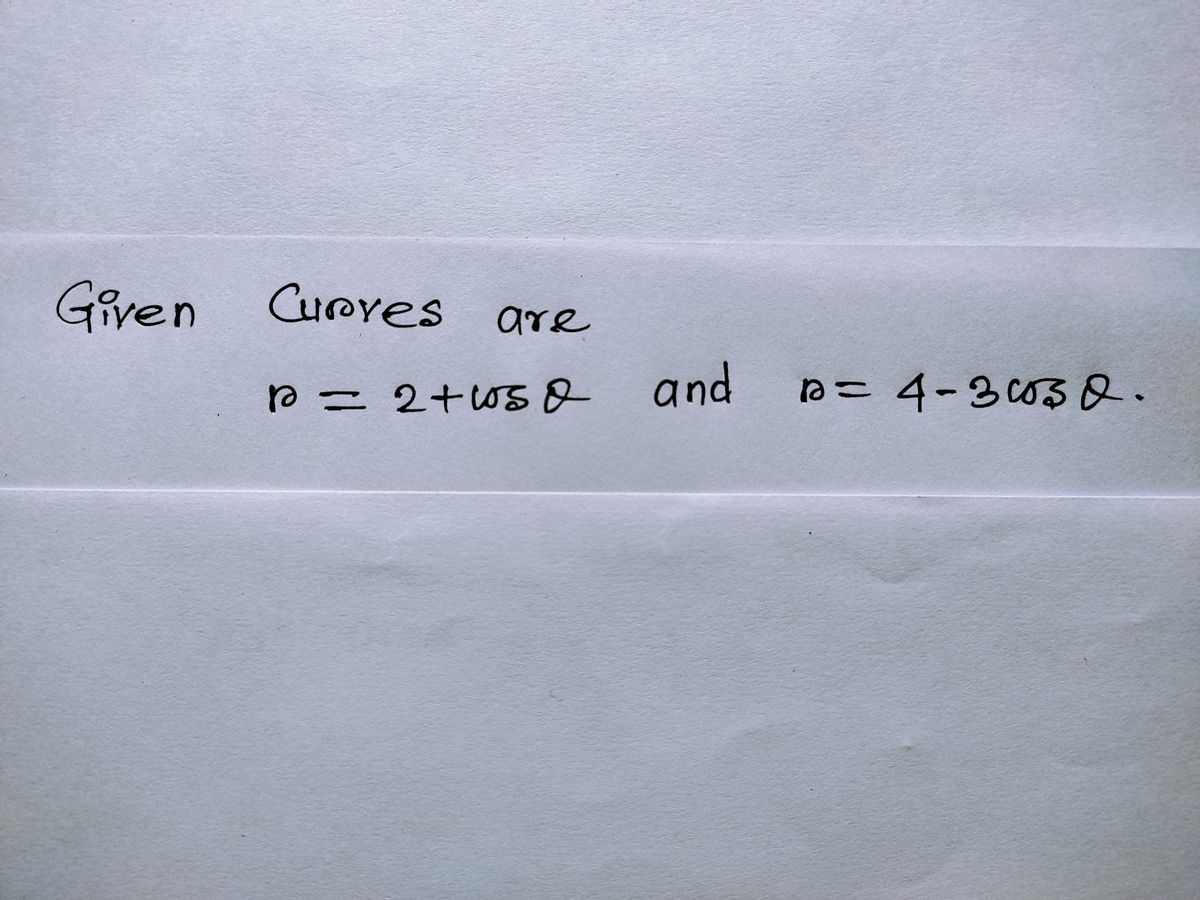 Given Curves are
r = 2+cos θ and r = 4-3 cos θ.